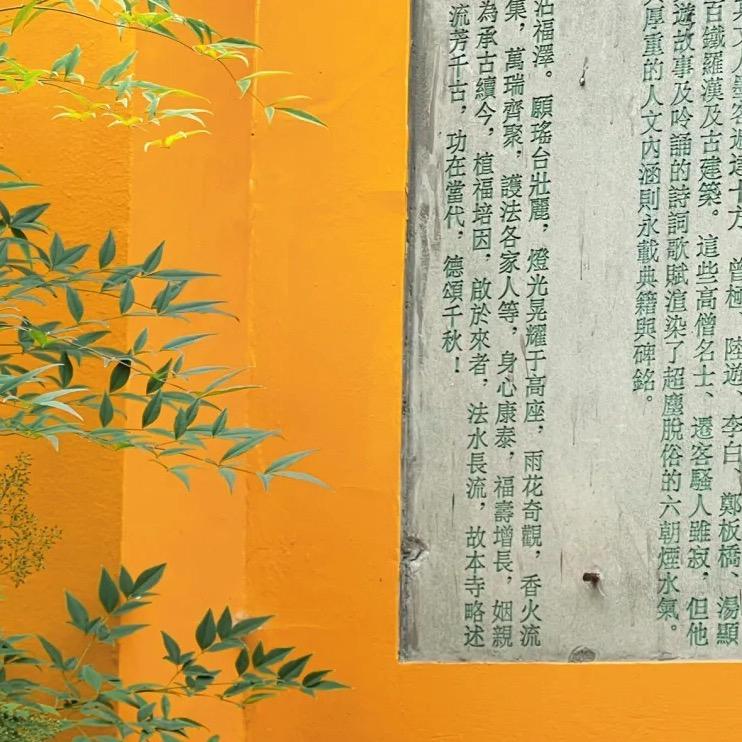 文人墨客過達十方，曾極、陸遊、李白、鄭板橋、湯顯
百鐵羅漢及古建築。這些高僧名士、遷客騷人雖寂，但他
遊故事及吟誦的詩詞歌賦渲染了超塵脫俗的六朝煙水氣。
厚重的人文內涵則永載典籍與碑銘。
沾福澤。願瑤台壯麗，燈光晃耀于高座，雨花奇觀，香火流
集，萬瑞齊聚，護法各家人等，身心康泰，福壽增長，姻親
為承古續今，植福培因，啟於來者，法水長流，故本寺略述
流芳千古，功在當代，德頌千秋！